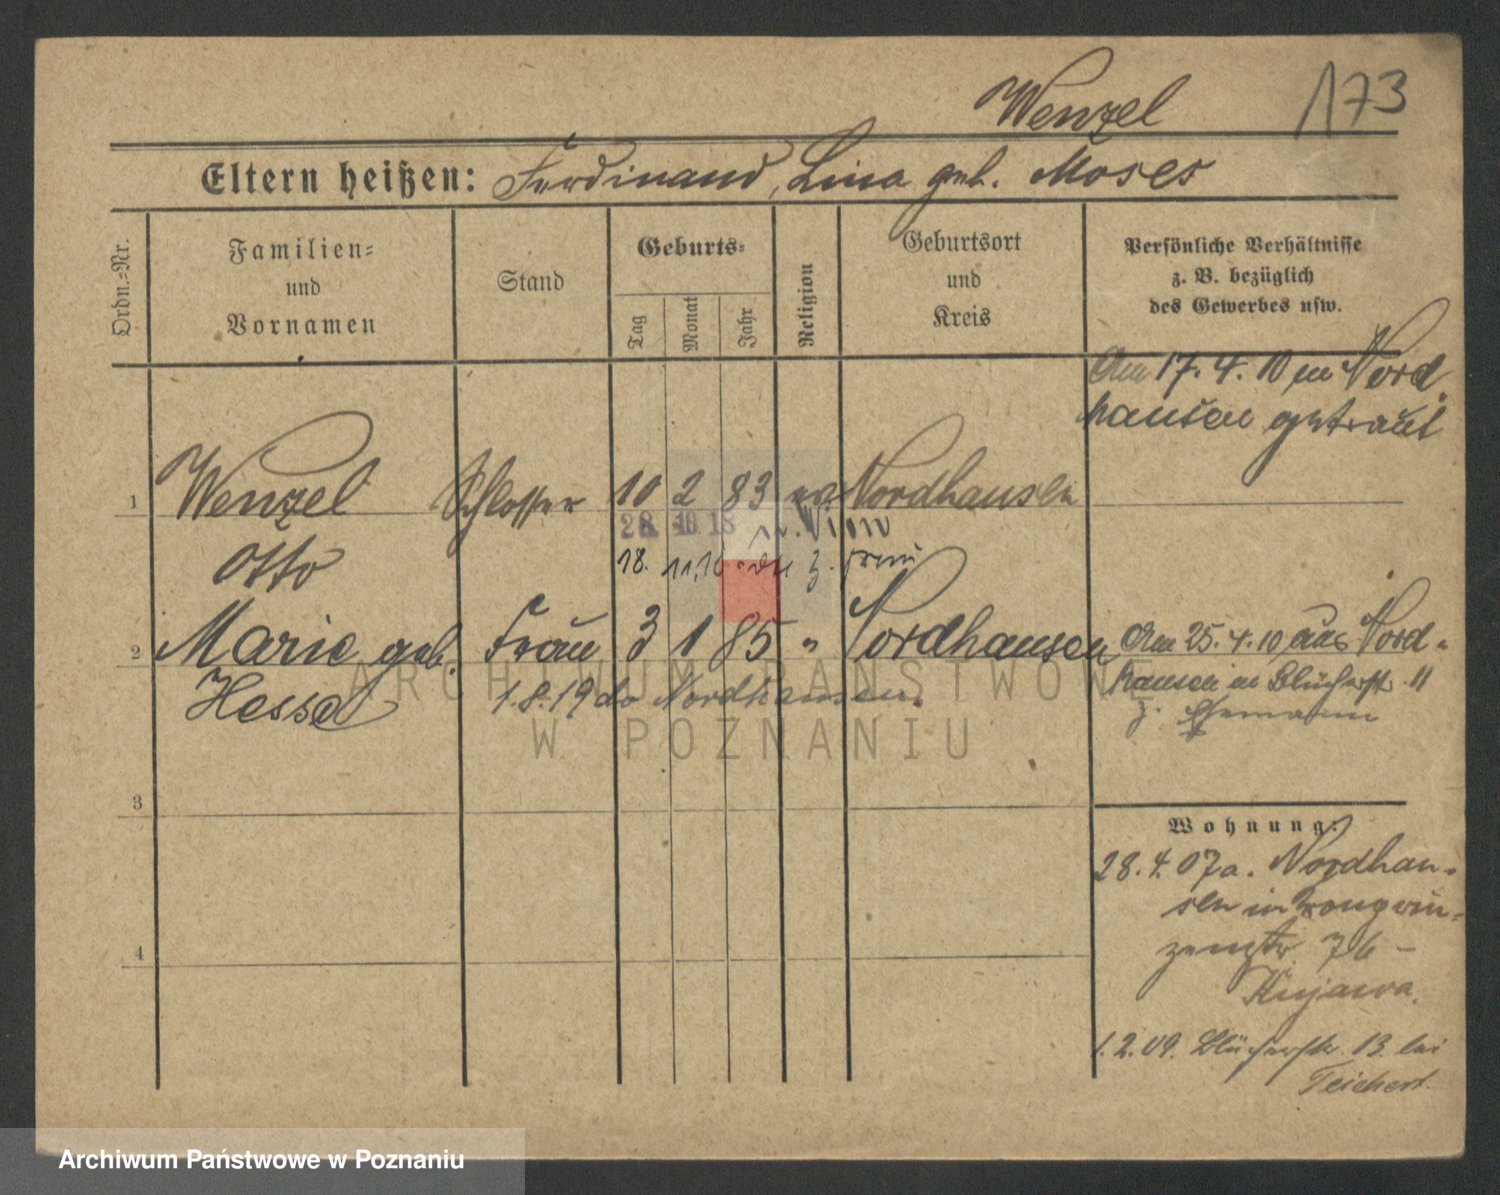 Wenzel
173
Eltern heißen: Ferdinand, Lina geb. Moses
Ordn.-Nr.
Familien-
und
Vornamen
Stand
Geburts-
Tag
Monat
Jahr
Religion
Geburtsort
und
Kreis
Persönliche Verhältnisse
z. B. bezüglich
des Gewerbes usw.
Am 17.4.10 in Nord
hausen getraut
1 Wenzel Schlosser 10 2 83 Nordhausen
28. 10. 18
Otto
18. 11.
2 Marie geb. Frau 3 1 85 " Nordhausen
Hesse
1.8.19 do Nordhausen.
Am 25.4.10 aus Nord-
hausen in Blücherstr. 11
z. Ehemann
3
4
Wohnung:
28.4.07 a. Nordhau-
sen in Kronprin-
zenstr. 76 -
Kujawa.
1.2.09. Blücherstr. 13 bei
Teichert.
ARCHIWUM PAŃSTWOWE
W POZNANIU
Archiwum Państwowe w Poznaniu